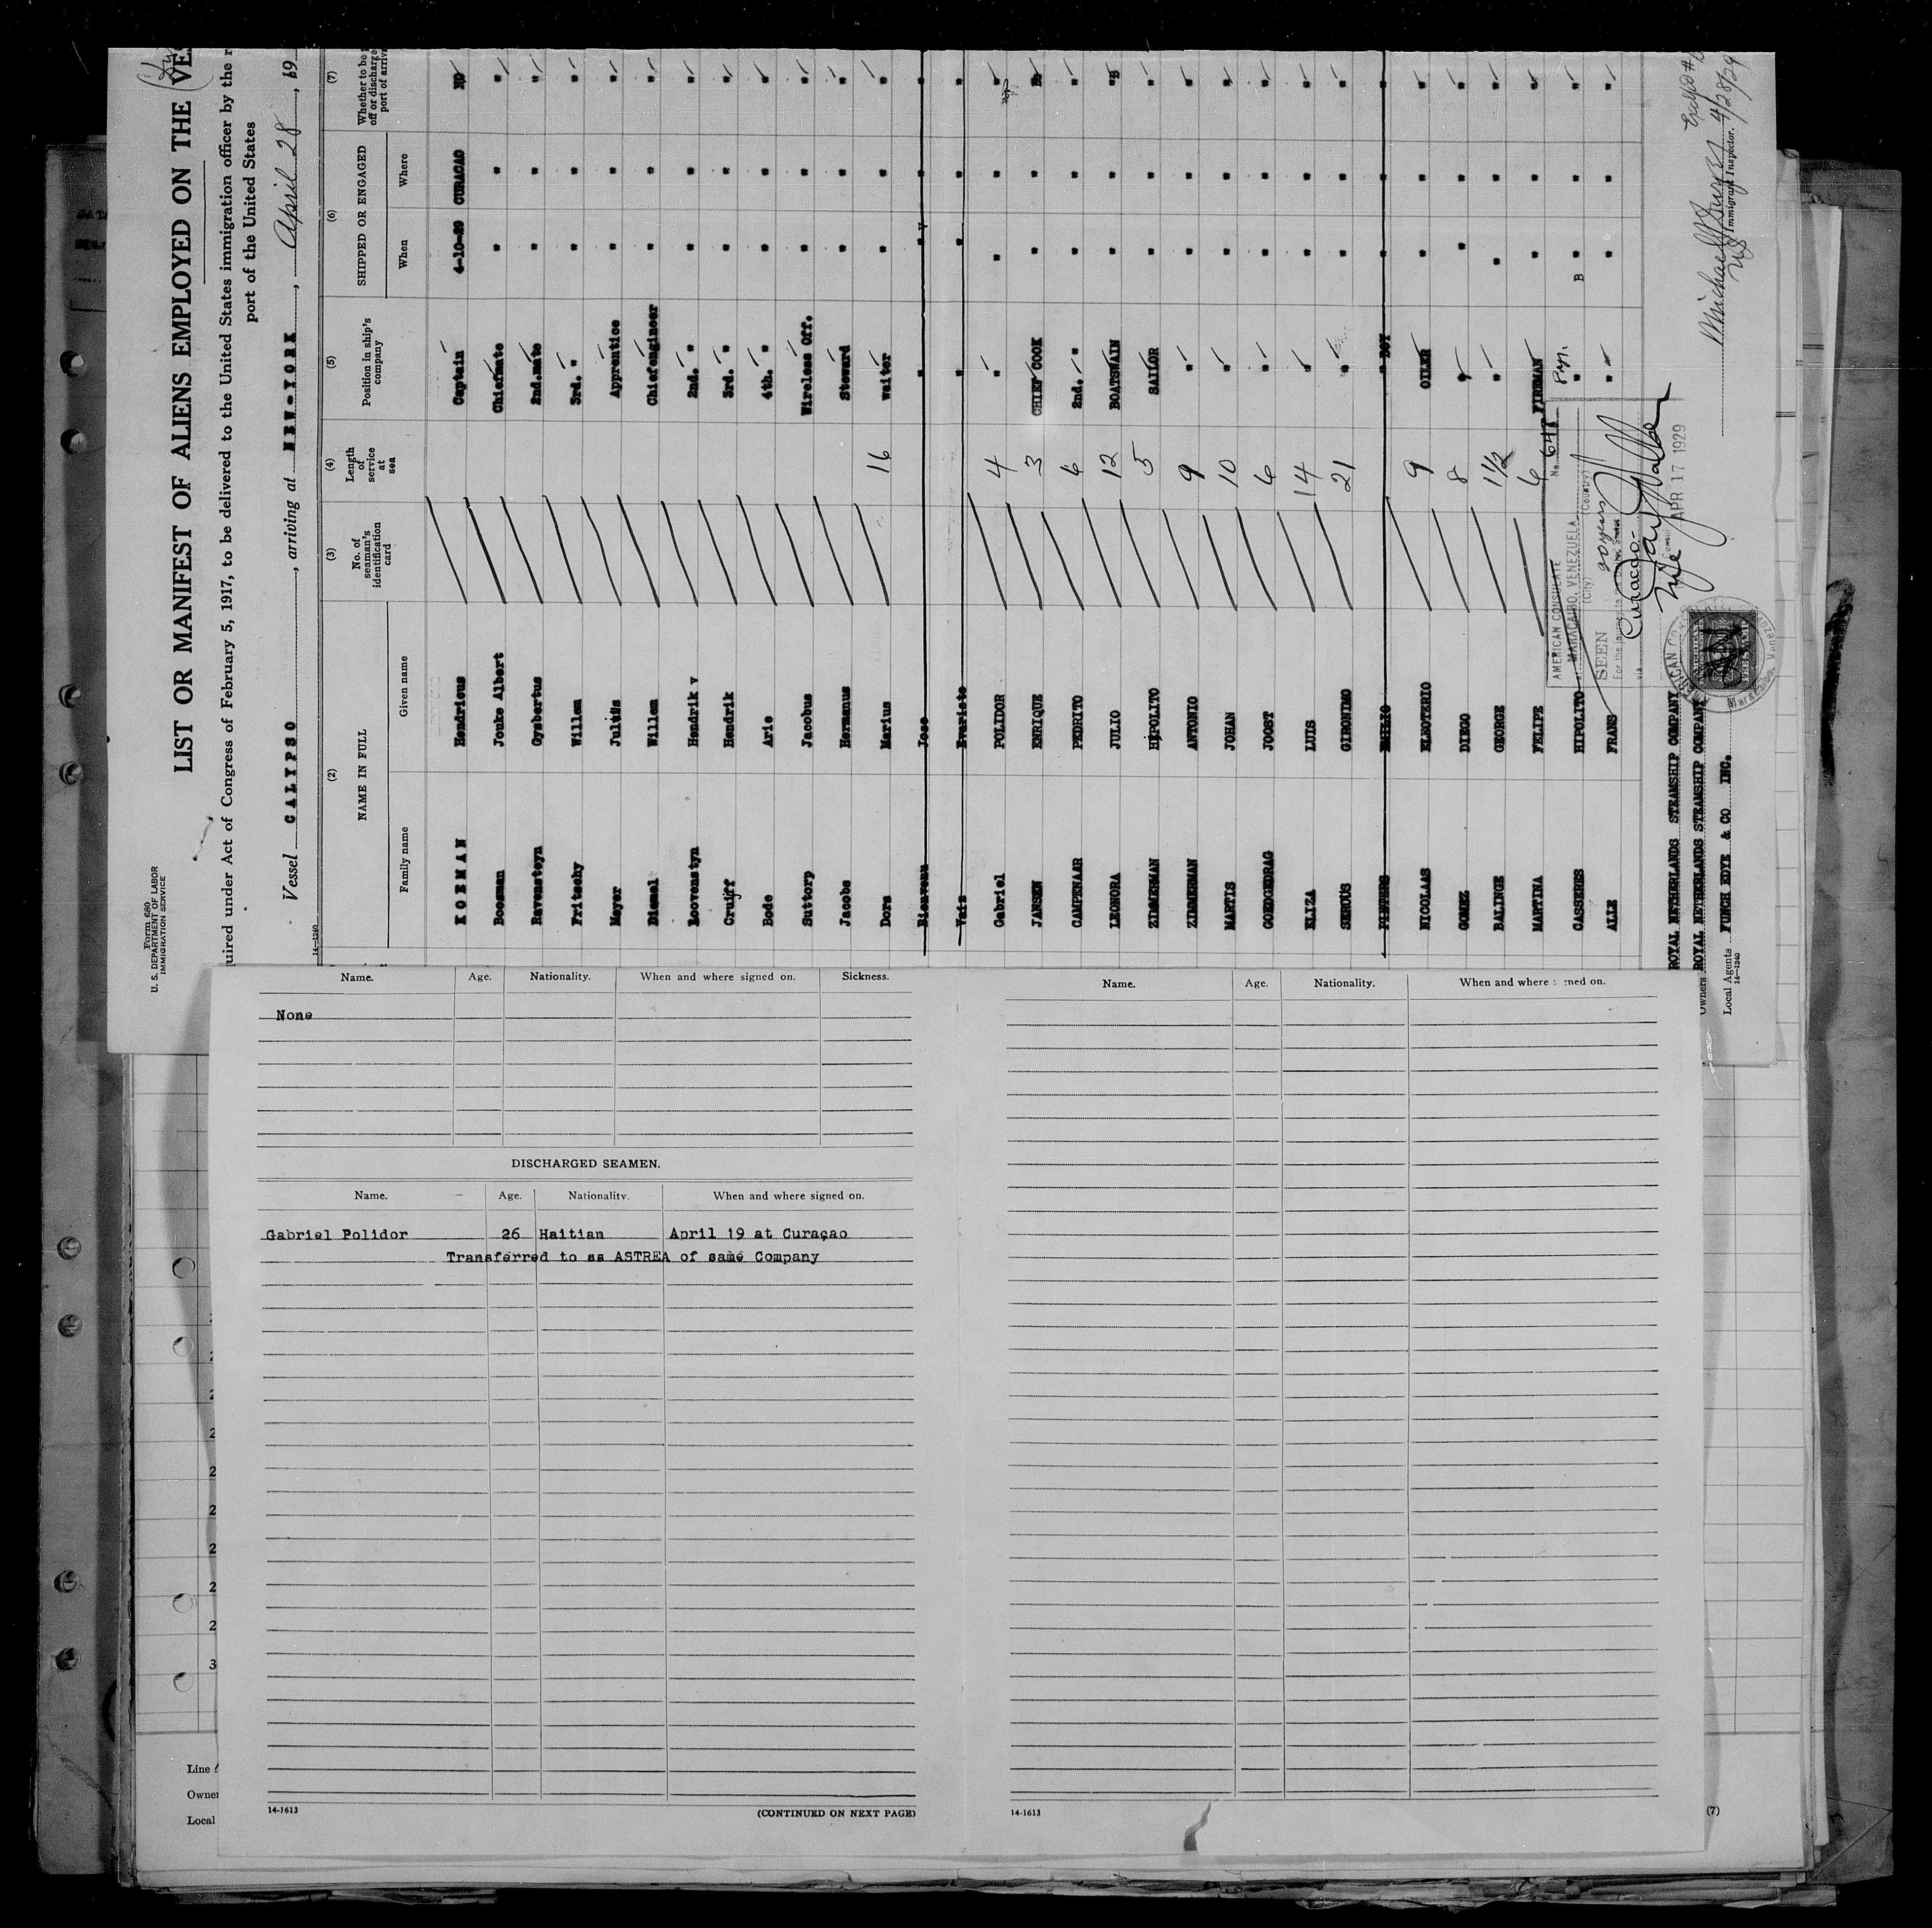 Form 680
U. S. DEPARTMENT OF LABOR
IMMIGRATION SERVICE
LIST OR MANIFEST OF ALIENS EMPLOYED ON THE VES
quired under Act of Congress of February 5, 1917, to be delivered to the United States immigration officer by the r
port of the United States
Vessel CALYPSO, arriving at NEW-YORK, April 28, 19
14—1240
(2) (3) (4) (5) (6) (7)
NAME IN FULL No. of seaman's identification card Length of service at sea Position in ship's company SHIPPED OR ENGAGED Whether to be off or discharge port of arriva
Family name Given name When Where
KOEMAN Hendricus Captain 4-10-29 CURACAO NO
Boosman Jouke Albert Chiefmate " " "
Ravensteyn Gysbertus 2nd.mate " " "
Fritschy Willem 3rd. " " " "
Meyer Julius Apprentice " " "
Diemel Willem Chiefengineer " " "
Loovenstyn Hendrik v 2nd. " " " "
Cruijff Hendrik 3rd. " " " "
Bode Arie 4th. " " " "
Suttorp Jacobus Wireless Off. " " "
Jacobs Hermanus Steward " " "
Dors Marius 16 waiter " " "
Bienveau Jose " " " "
Vaiz Evaristo " " " "
Gabriel POLIDOR 4 " " " "
JANSEN ENRIQUE 3 CHIEF COOK " "
CAMPENAAR PEDRITO 6 2nd. " " " "
LEONORA JULIO 12 BOATSWAIN " " "
ZIMMERMAN HIPOLITO 5 SAILOR " " "
ZIMMERMAN ANTONIO 9 " " " "
MARTIS JOHAN 10 " " " "
GOEDGEDRAG JOOST 6 " " " "
ELIZA LUIS 14 " " " "
SEROUS GIRONIMO 21 " " " "
PIETERS EMILIO " BOY " " "
NICOLAAS ELEOTERIO 9 OILER " " "
GOMEZ DIEGO 8 " " " "
BALINGE GEORGE 1½ " " " "
MARTINA FELIPE 6 FIREMAN " " "
CASSERES HIPOLITO " B " " "
ALLE FRANS " " " "
AMERICAN CONSULATE No. 647
at MARACAIBO, VENEZUELA
(City) (Country)
SEEN
For the journey to the United States
via Curacao
APR 17 1929
ROYAL NETHERLANDS STEAMSHIP COMPANY
Owners ROYAL NETHERLANDS STEAMSHIP COMPANY
Local Agents FUNCH EDYE & CO INC.
14—1240
Immigrant Inspector. 4/28/29
Name. Age. Nationality. When and where signed on. Sickness.
None
DISCHARGED SEAMEN.
Name. Age. Nationality. When and where signed on.
Gabriel Polidor 26 Haitian April 19 at Curaçao
Transferred to ss ASTREA of same Company
14-1613 (CONTINUED ON NEXT PAGE)
Name. Age. Nationality. When and where signed on.
14-1613 (7)
2
2
2
2
2
2
3
Line
Owner
Local